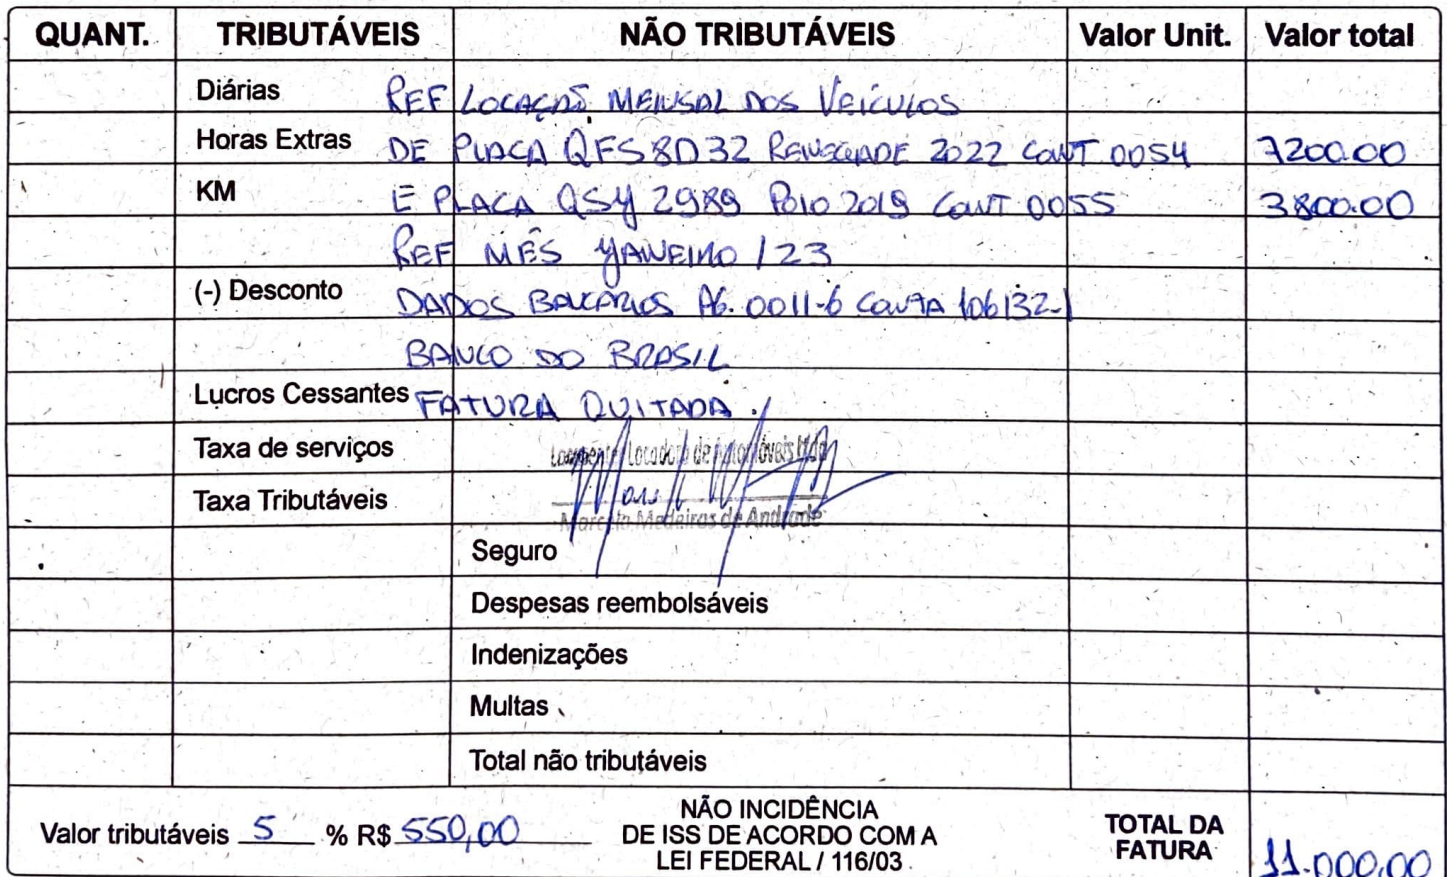 QUANT. TRIBUTÁVEIS NÃO TRIBUTÁVEIS Valor Unit. Valor total
Diárias REF LOCAÇÃO MENSAL DOS VEÍCULOS
Horas Extras DE PLACA QFS8D32 RENEGADE 2022 CONT 0054 7200.00
KM E PLACA QSY 2989 POLO 2019 CONT 0055 3800.00
REF MÊS JANEIRO / 23
(-) Desconto DADOS BANCÁRIOS AG. 0011-6 CONTA 106132-1
BANCO DO BRASIL
Lucros Cessantes FATURA QUITADA.
Taxa de serviços Locadora de Automóveis Ltda
Taxa Tributáveis
Marcelo Medeiros de Andrade
Seguro
Despesas reembolsáveis
Indenizações
Multas
Total não tributáveis
Valor tributáveis 5 % R$ 550,00
NÃO INCIDÊNCIA
DE ISS DE ACORDO COM A
LEI FEDERAL / 116/03
TOTAL DA
FATURA
11.000,00